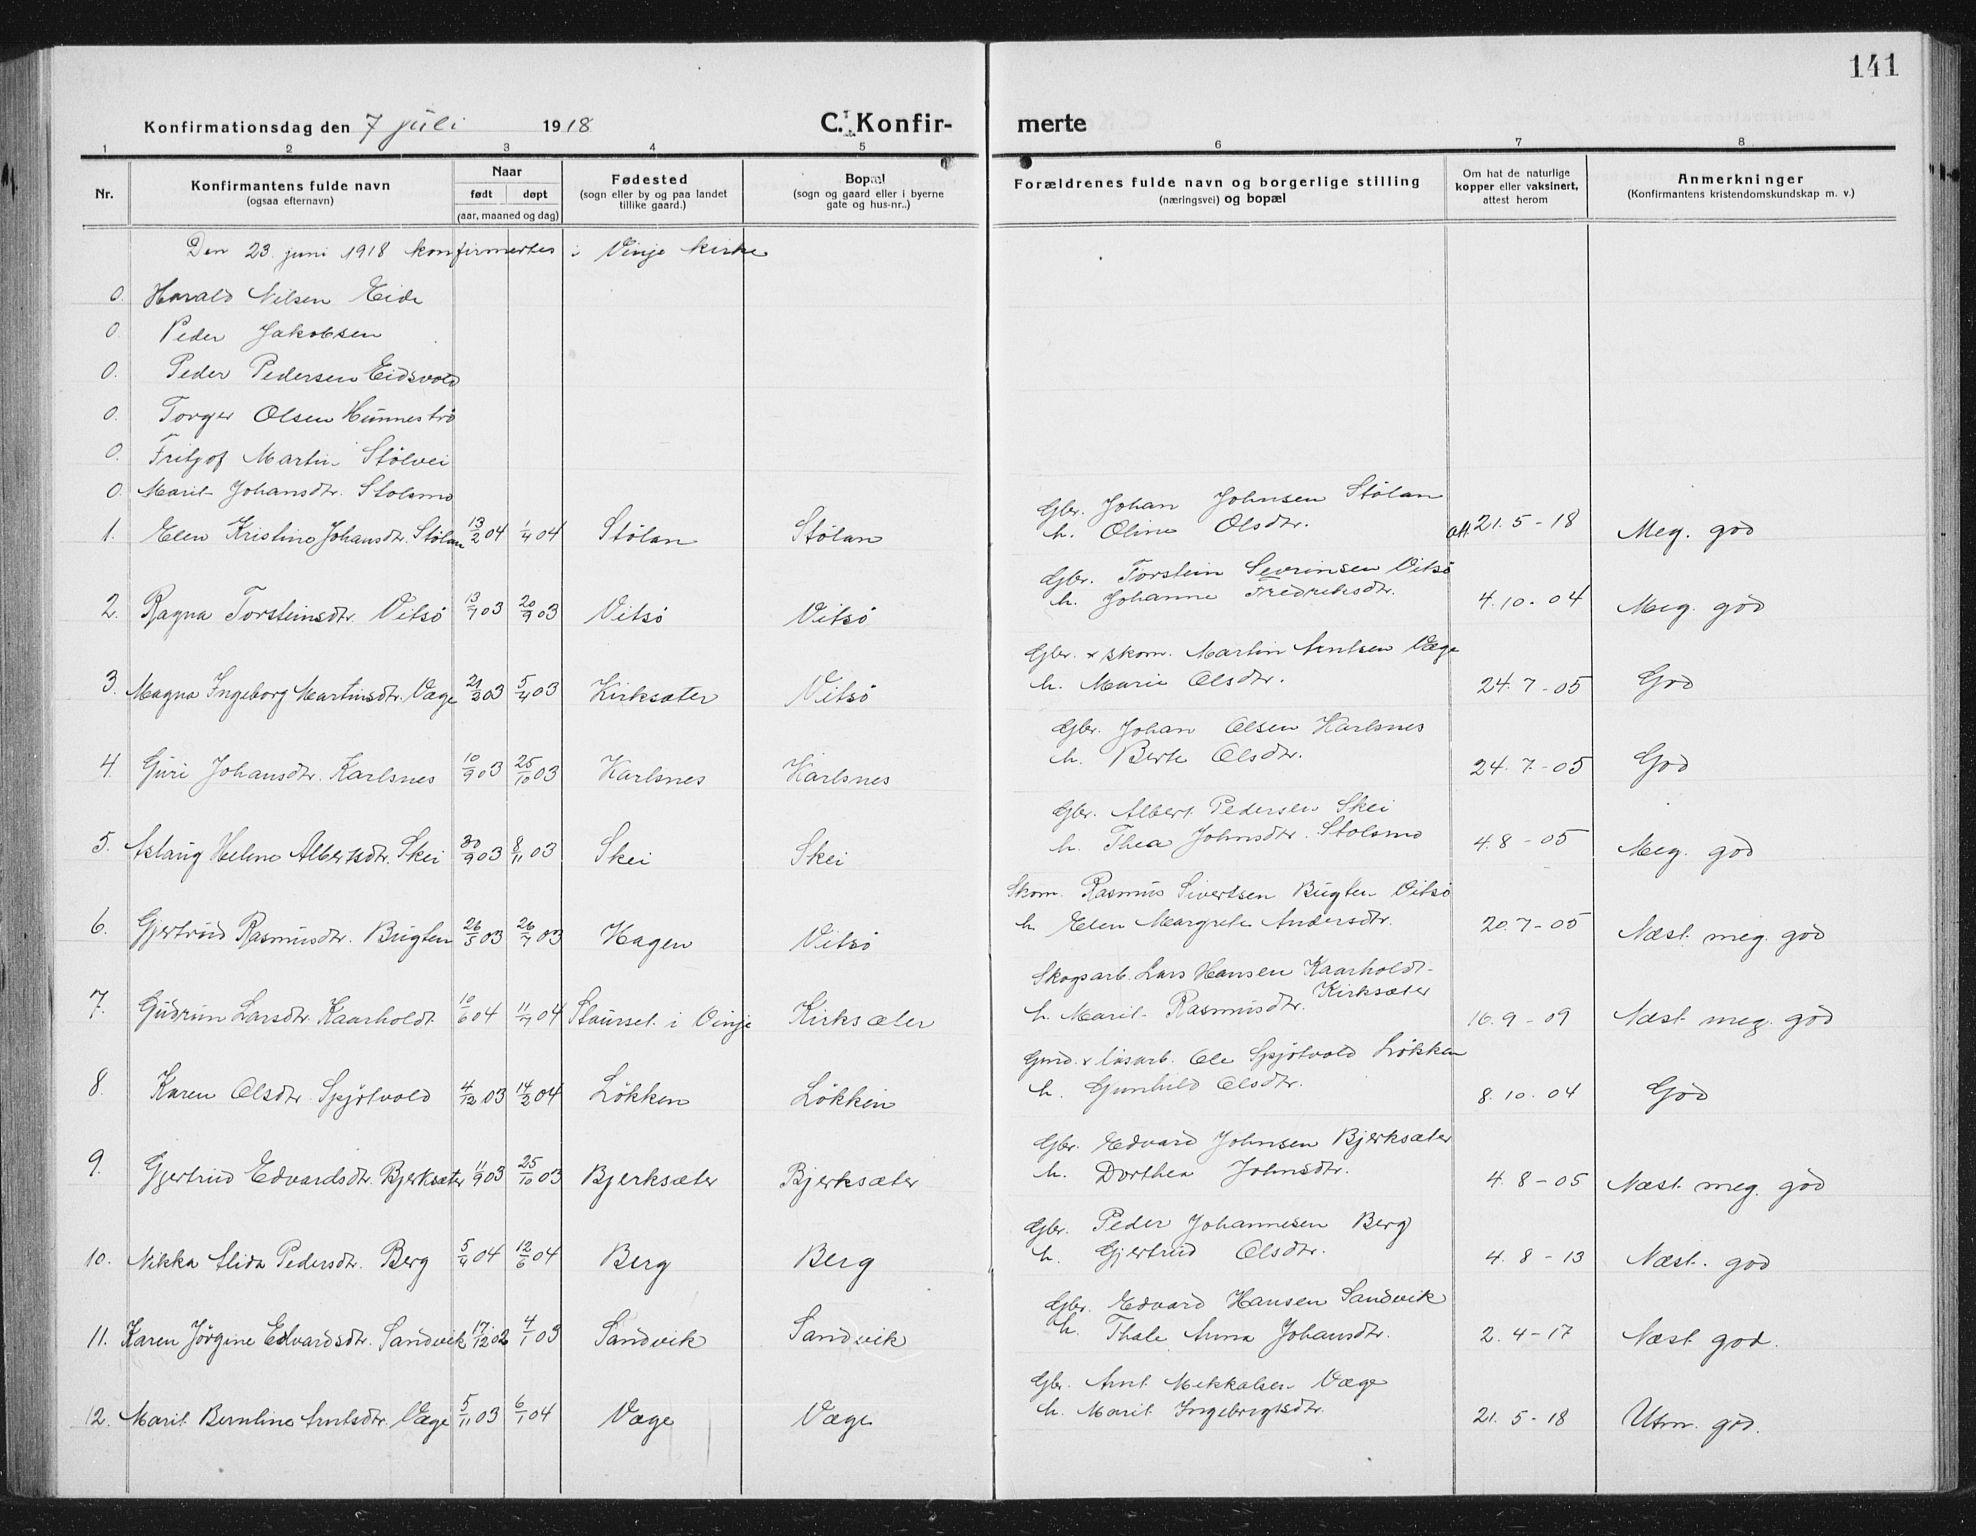 141
Konfirmationsdag den 7 juli 1918 C. Konfir- merte
1 2 3 4 5 6 7 8
Nr.
Konfirmantens fulde navn
(ogsaa efternavn)
Naar
født døpt
(aar, maaned og dag)
Fødested
(sogn eller by og paa landet
tillike gaard.)
Bopæl
(sogn og gaard eller i byerne
gate og hus-nr..)
Forældrenes fulde navn og borgerlige stilling
(næringsvei) og bopæl
Om hat de naturlige
kopper eller vaksinert,
attest herom
Anmerkninger
(Konfirmantens kristendomskundskap m. v.)
Den 23. juni 1918 konfirmertes i Vinje kirke
0. Harald Nilsen Eide
0. Peder Jakobsen
0. Peder Pedersen Eidsvold
0. Torger Olsen Hunnestrø
0. Fritjof Martin Stølvei
0. Marit Johansdtr. Stolsmo
Gbr. Johan Johnsen Stølan
h. Oline Olsdtr.
1. Elen Kristine Johansdtr. Stølan 13/2 04 1/4 04 Stølan Stølan att. 21. 5 - 18 Meg. god
Gbr. Torstein Sevrinsen Vitsø
h. Johanne Fredriksdtr.
2. Ragna Torsteinsdtr. Vitsø 13/7 03 20/9 03 Vitsø Vitsø 4. 10. 04 Meg. god
Gbr. & skom. Martin Arntsen Væge
h. Marie Olsdtr.
3. Magna Ingeborg Martinsdtr. Væge 21/2 03 5/4 03 Kirksæter Vitsø 24. 7 - 05 God
Gbr. Johan Olsen Karlsnes
h. Berte Olsdtr.
4. Guri Johansdtr. Karlsnes 10/9 03 25/10 03 Karlsnes Karlsnes 24. 7. - 05 God
Gbr. Albert Pedersen Skei
h. Thea Johnsdtr. Stolsmo
5. Aslaug Helene Albertsdtr. Skei 30/9 03 8/11 03 Skei Skei 4. 8 - 05 Meg. god
Skom. Rasmus Sivertsen Bugten Vitsø
h. Elen Margrete Andersdtr.
6. Gjertrud Rasmusdtr. Bugten 26/5 03 26/7 03 Hagen Vitsø 20. 7 - 05 Næst. meg. god
Skogsarb. Lars Hansen Kaarholdt
h. Marit Rasmusdtr. Kirksæter
7. Gudrun Larsdtr. Kaarholdt 10/6 04 11/9 04 Staurset i Vinje Kirksæter 16. 9 - 09 Næst meg. god
Grud. & løsarb. Ole Spjøtvold Løkken
h. Gjunhild Olsdtr.
8. Karen Olsdtr. Spjøtvold 4/12 03 14/2 04 Løkken Løkken 8. 10. 04 God
Gbr. Edvard Johnsen Bjerksæter
h. Dorthea Johnsdtr.
9. Gjertrud Edvardsdtr. Bjerksæter 11/9 03 25/10 03 Bjerksæter Bjerksæter 4. 8 - 05 Næst. meg. god
Gbr. Peder Johannesen Berg
h. Gjertrud Olsdtr.
10. Nikka Alida Pedersdtr. Berg 5/4 04 12/6 04 Berg Berg 4. 8 - 13 Næst. god
Gbr. Edvard Hansen Sandvik
h. Thale Anna Johansdtr.
11. Karen Jørgine Edvardsdtr. Sandvik 17/12 02 4/1 03 Sandvik Sandvik 2. 4 - 17 Næst god.
Gbr. Arnt Mikkalsen Væge
h. Marit Ingebrigtsdtr.
12. Marit Berntine Arntsdtr. Væge 5/11 03 6/1 04 Væge Væge 21. 5 - 18 Utm. god.